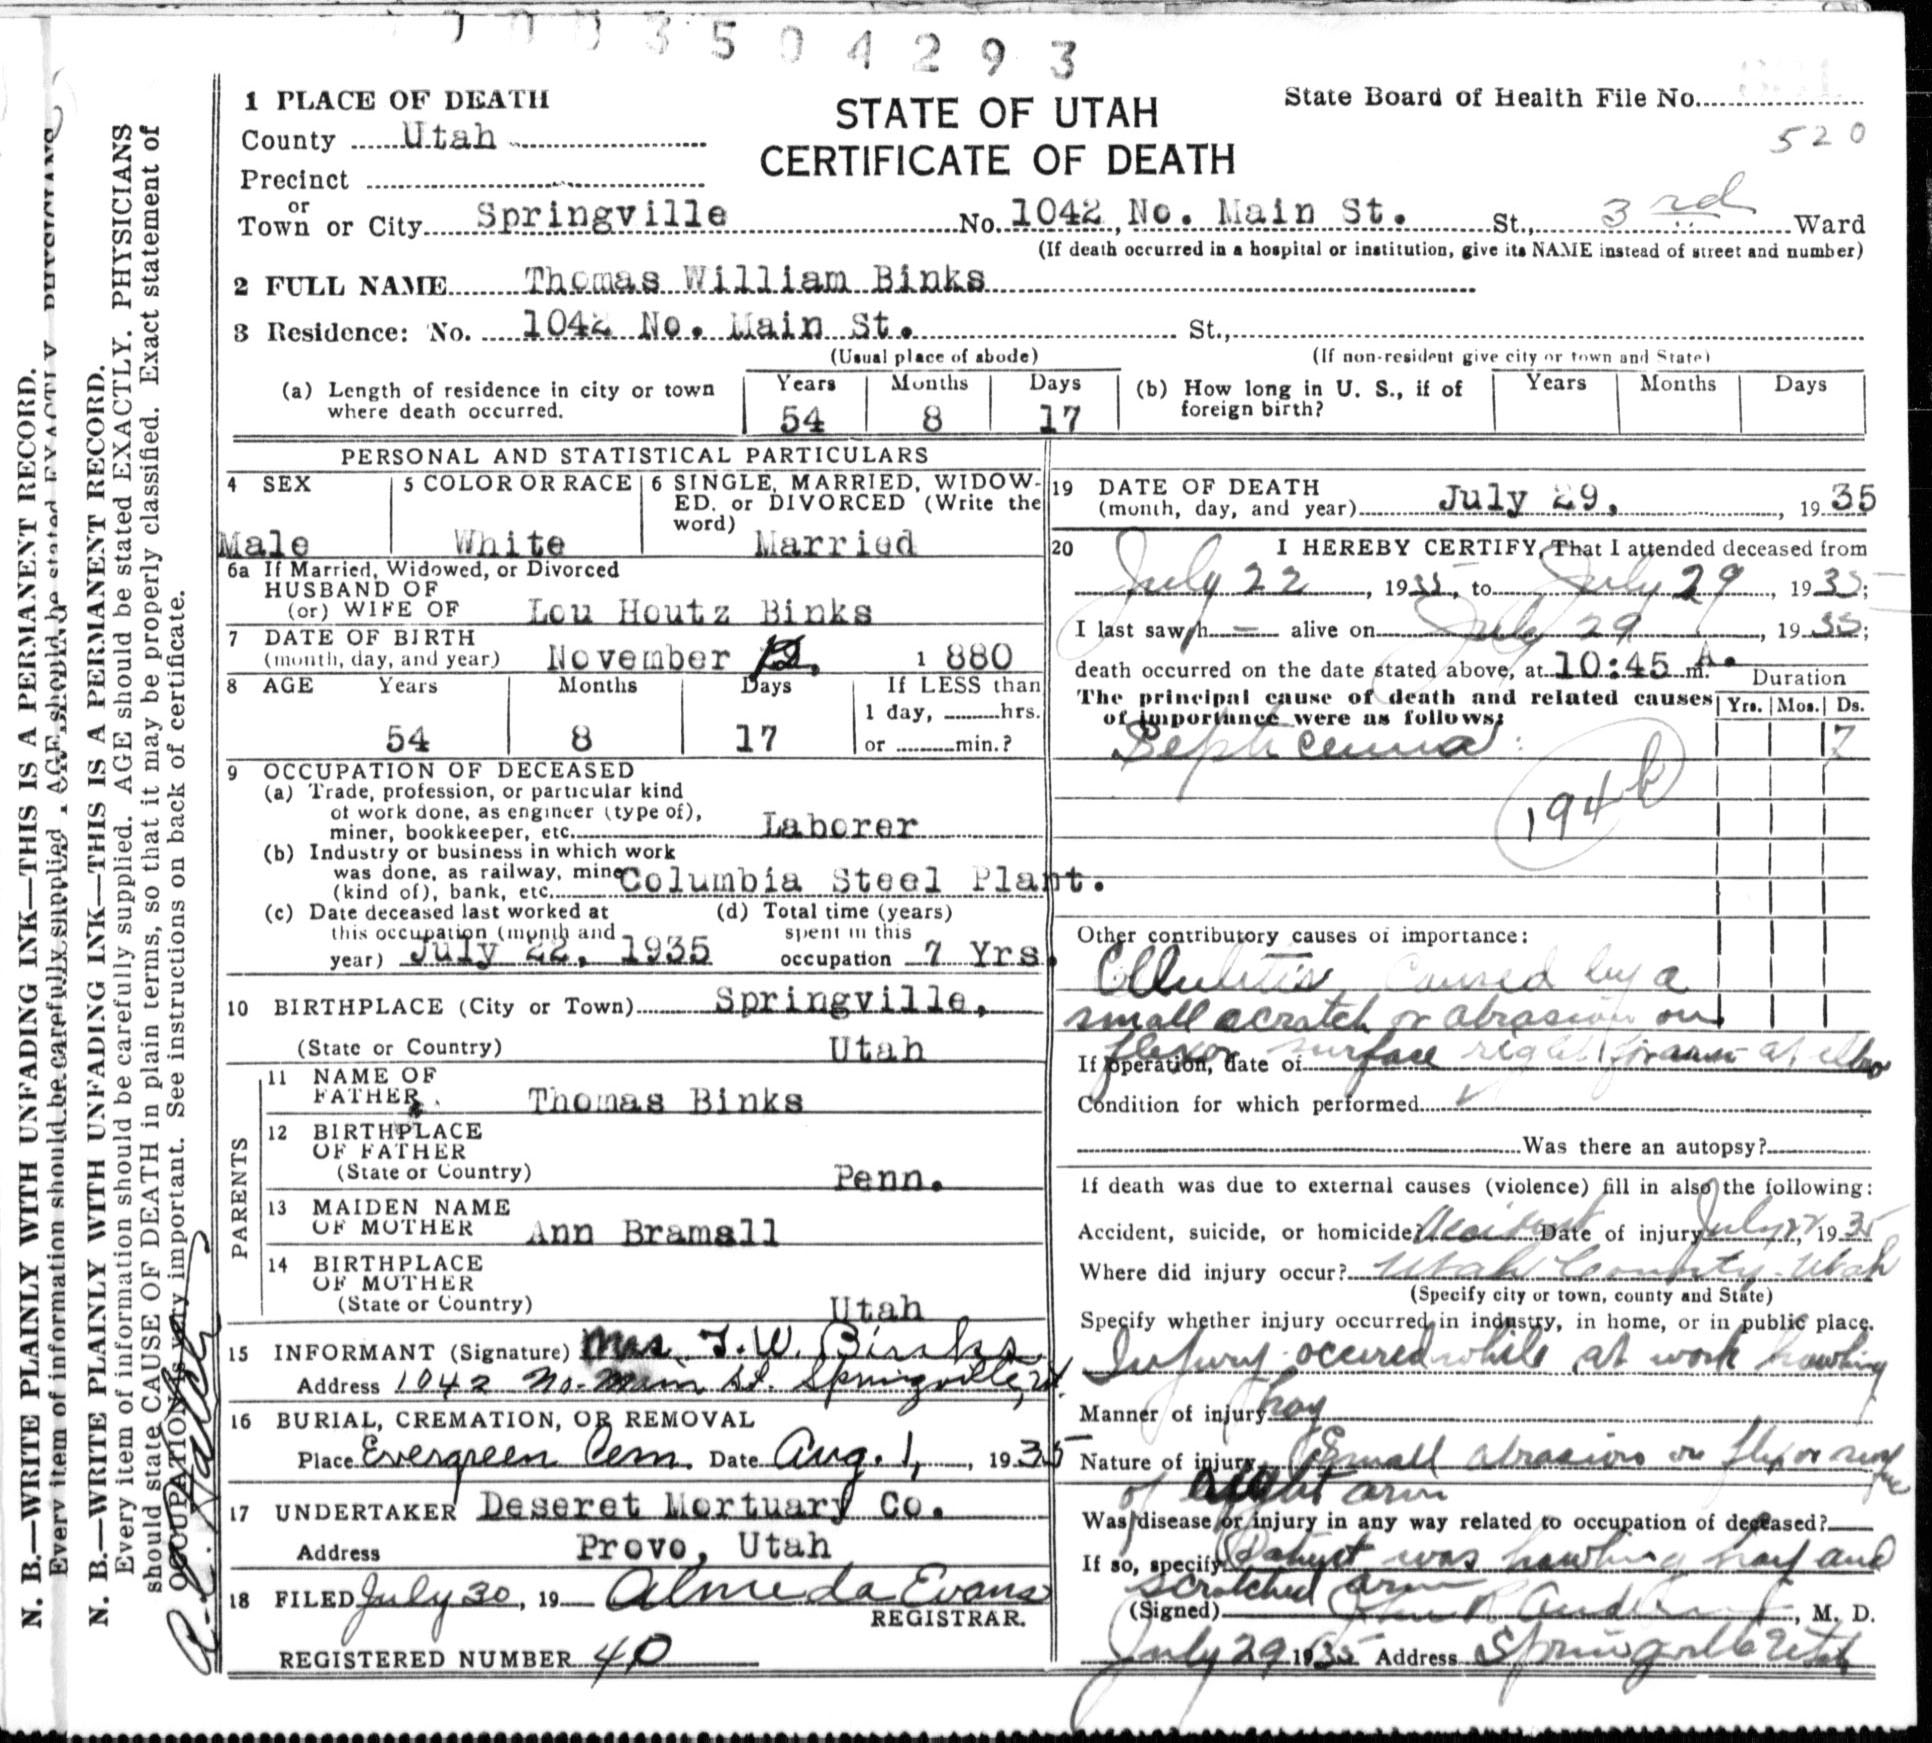 3504293
1 PLACE OF DEATH
STATE OF UTAH
CERTIFICATE OF DEATH
State Board of Health File No.
520
County Utah
Precinct
or
Town or City Springville No. 1042 No. Main St. St., 3rd Ward
(If death occurred in a hospital or institution, give its NAME instead of street and number)
2 FULL NAME Thomas William Binks
3 Residence: No. 1042 No. Main St. St.,
(Usual place of abode) (If non-resident give city or town and State)
(a) Length of residence in city or town where death occurred. Years 54 Months 8 Days 17
(b) How long in U. S., if of foreign birth? Years Months Days
PERSONAL AND STATISTICAL PARTICULARS
4 SEX Male
5 COLOR OR RACE White
6 SINGLE, MARRIED, WIDOW-
ED, or DIVORCED (Write the
word) Married
6a If Married, Widowed, or Divorced
HUSBAND OF
(or) WIFE OF Lou Houtz Binks
7 DATE OF BIRTH
(month, day, and year) November 12, 1880
8 AGE Years 54 Months 8 Days 17 If LESS than
1 day, hrs.
or min.?
9 OCCUPATION OF DECEASED
(a) Trade, profession, or particular kind
of work done, as engineer (type of),
miner, bookkeeper, etc. Laborer
(b) Industry or business in which work
was done, as railway, mine
(kind of), bank, etc. Columbia Steel Plant.
(c) Date deceased last worked at
this occupation (month and
year) July 22, 1935
(d) Total time (years)
spent in this
occupation 7 Yrs.
10 BIRTHPLACE (City or Town) Springville,
(State or Country) Utah
PARENTS
11 NAME OF
FATHER Thomas Binks
12 BIRTHPLACE
OF FATHER
(State or Country) Penn.
13 MAIDEN NAME
OF MOTHER Ann Bramall
14 BIRTHPLACE
OF MOTHER
(State or Country) Utah
15 INFORMANT (Signature) Mrs. T. W. Binks
Address 1042 No. Main St. Springville, Ut.
16 BURIAL, CREMATION, OR REMOVAL
Place Evergreen Cem. Date Aug. 1, 1935
17 UNDERTAKER Deseret Mortuary Co.
Address Provo, Utah
18 FILED July 30, 19 Almeda Evans
REGISTRAR.
REGISTERED NUMBER 40
19 DATE OF DEATH
(month, day, and year) July 29, 1935
20 I HEREBY CERTIFY, That I attended deceased from
July 22, 1935, to July 29, 1935;
I last saw h alive on July 29, 1935;
death occurred on the date stated above, at 10:45 A. m.
The principal cause of death and related causes
of importance were as follows:
Duration
Yrs. Mos. Ds.
Septicemia 7
194b
Other contributory causes of importance:
Cellulitis, caused by a
small scratch or abrasion on
flexor surface right forearm at elbow
If operation, date of
Condition for which performed
Was there an autopsy?
If death was due to external causes (violence) fill in also the following:
Accident, suicide, or homicide? Accident Date of injury July 22, 1935
Where did injury occur? Utah County - Utah
(Specify city or town, county and State)
Specify whether injury occurred in industry, in home, or in public place.
Injury occured while at work hawling
hay
Manner of injury
Nature of injury Small abrasion on flexor surface
of right arm
Was disease or injury in any way related to occupation of deceased?
If so, specify Patient was hawling hay and
scratched arm
(Signed) John R Anderson, M. D.
July 29 1935 Address Springville Utah
N. B.—WRITE PLAINLY WITH UNFADING INK—THIS IS A PERMANENT RECORD.
N. B.—WRITE PLAINLY WITH UNFADING INK—THIS IS A PERMANENT RECORD.
Every item of information should be carefully supplied. AGE should be stated EXACTLY. PHYSICIANS
should state CAUSE OF DEATH in plain terms, so that it may be properly classified. Exact statement of
OCCUPATION is very important. See instructions on back of certificate.